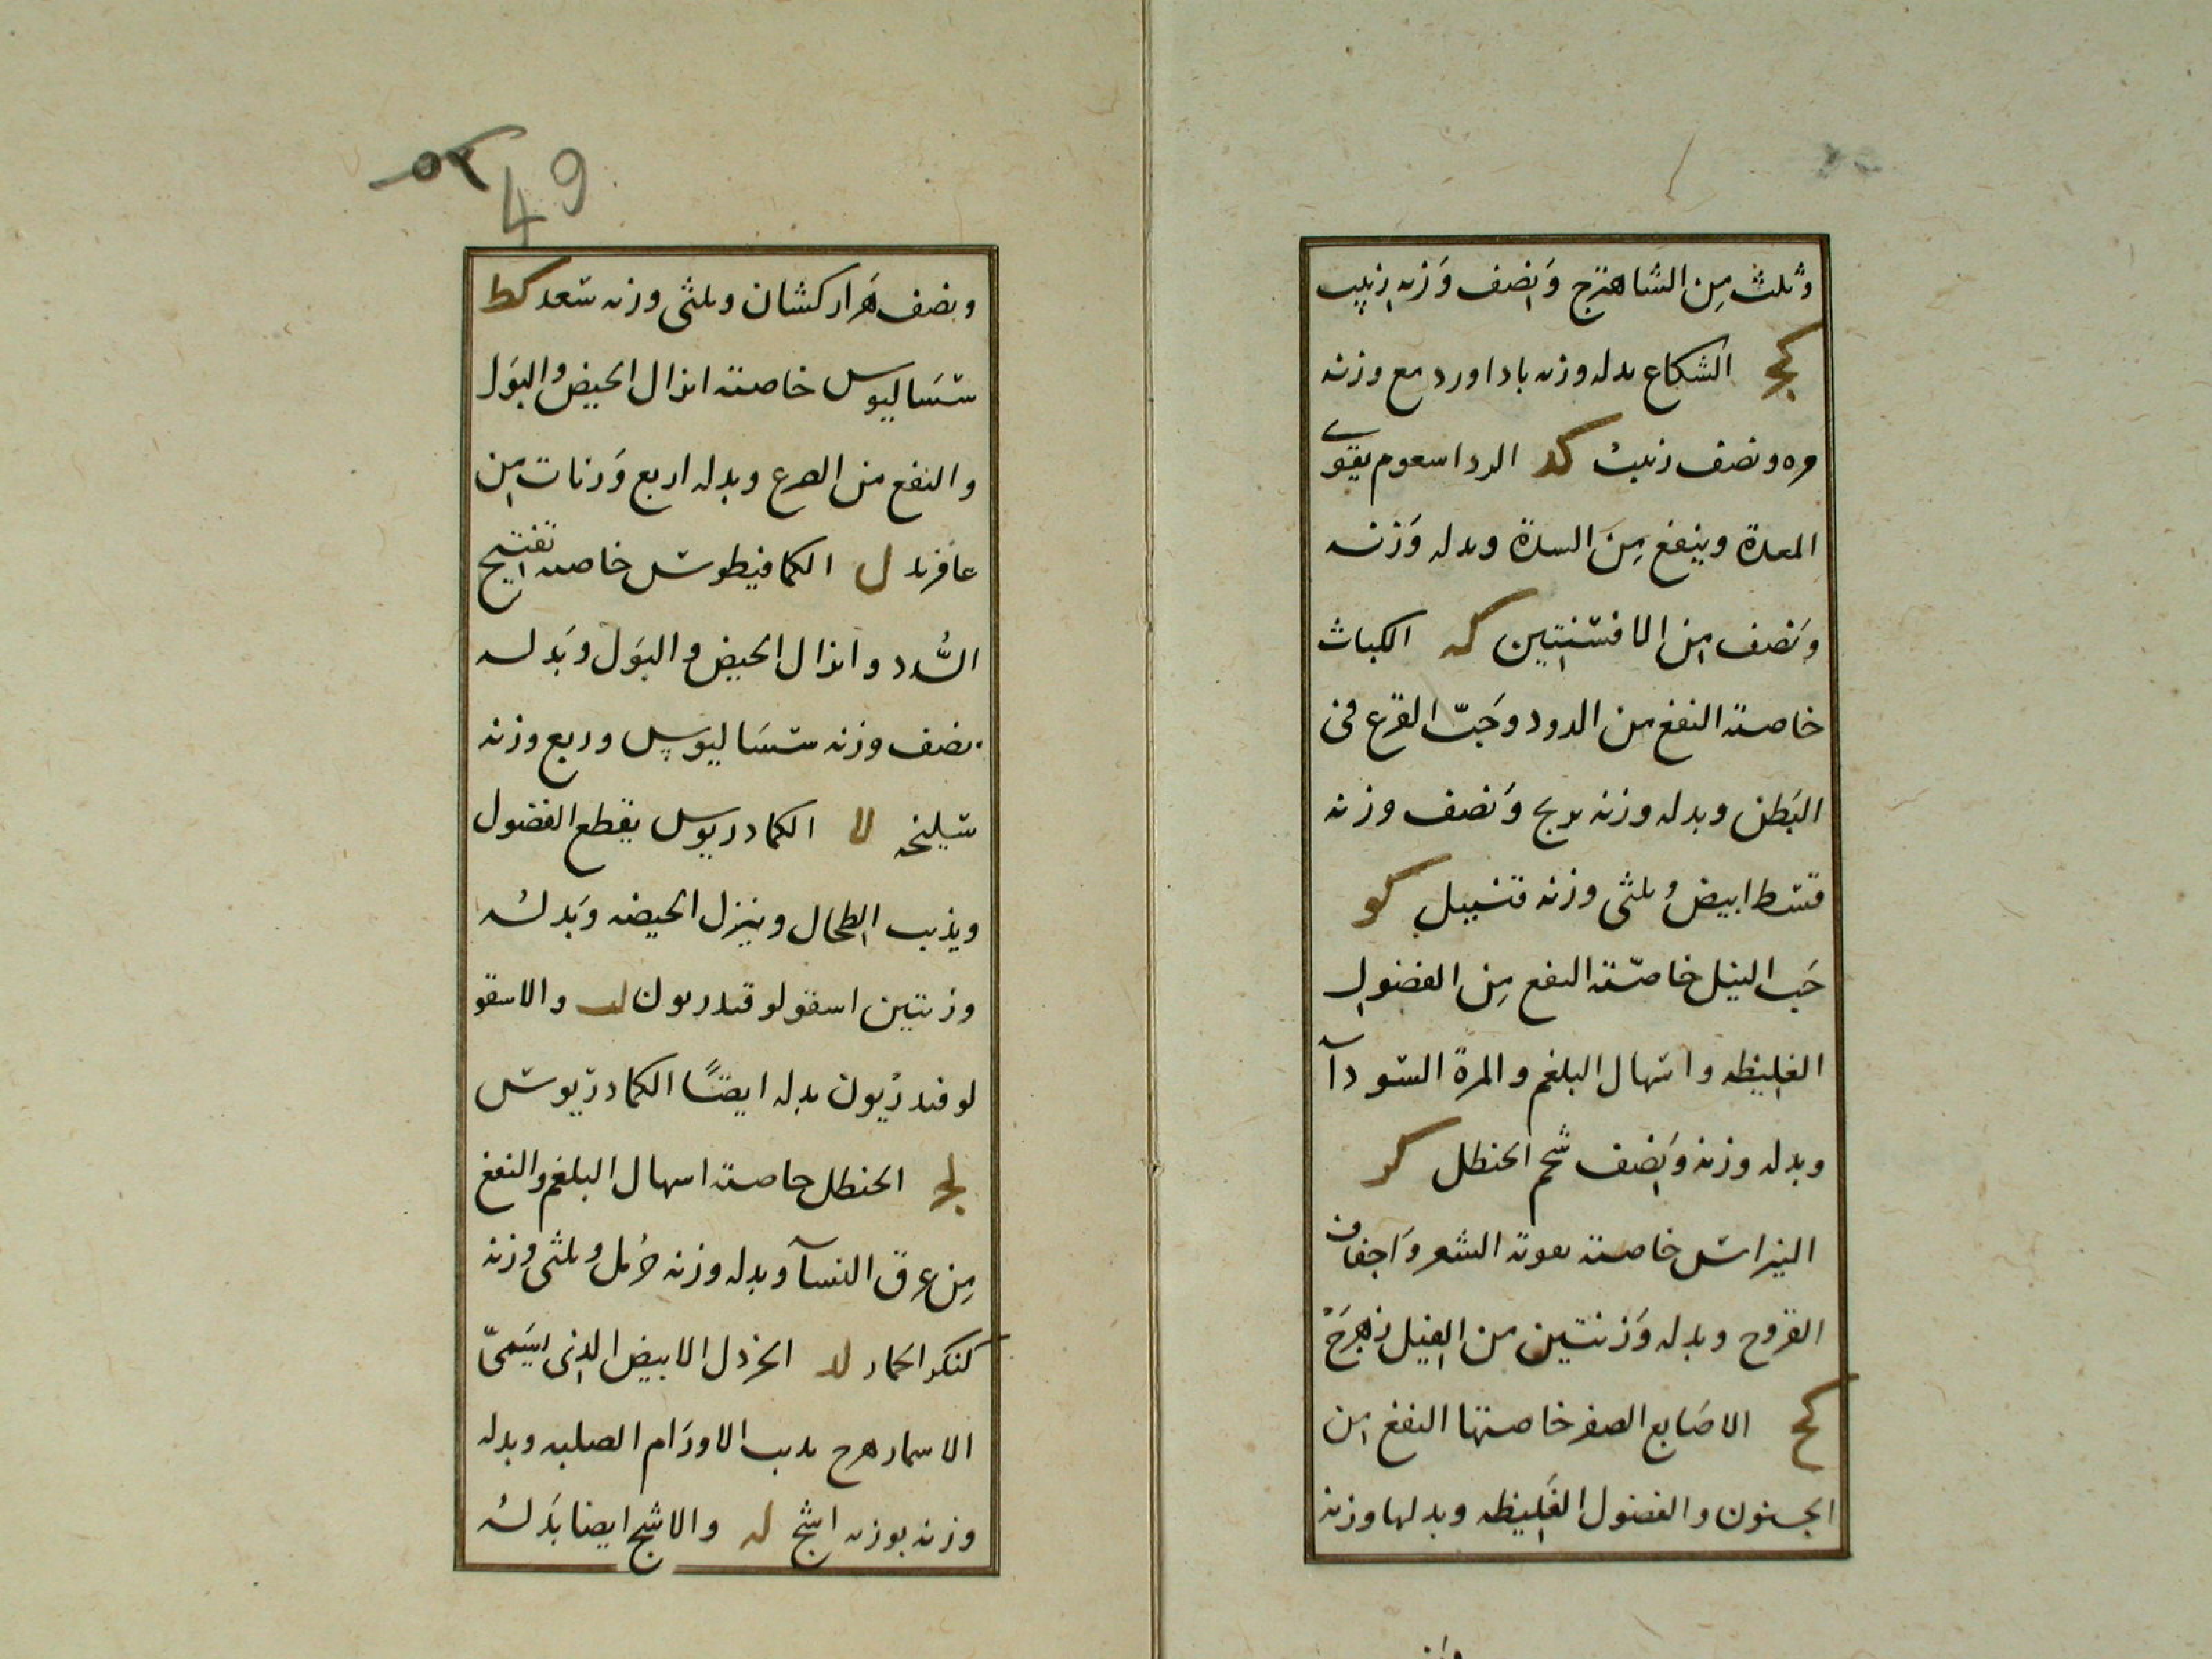 وثلث من الشاهترج ونصف وزنه زبيب
كج الشكاع بدله وزنه باداورد مع وزنه
مره ونصف زبيب كد يقوى
المعدة وينفع من السدة وبدله وزنه
ونصف من الافسنتين كه الكباث
خاصته النفع من الدود وحبّ القرع فى
البطن وبدله وزنه برنج ونصف وزنه
قسط ابيض وثلثى وزنه قنبيل كو
حب النيل خاصّته النفع من الفضول
الغليظه واسهال البلغم والمرة السودآ
وبدله وزنه ونصف شحم الحنطل كز
خاصته تقوية الشعر واجفاف
القروح وبدله وزنتين من الفيل زهرج
كح الاصابع الصفر خاصتها النفع من
الجنون والفضول الغليظه وبدلها وزنه
٥٢
49
ونصف هزاركشان وثلثى وزنه سعد كط
سساليوس خاصته انزال الحيض والبول
والنفع من الصرع وبدله اربع وزنات من
ل الكمافيطوس خاصته تفتيح
السُّدد وانزال الحيض والبول وبدله
نصف وزنه سساليوس وربع وزنه
سليخه لا الكمادريوس يقطع الفضول
ويذيب الطحال وينزل الحيضه وبدله
وزنتين اسقولوقندريون لب والاسقو
لوقندريون بدله ايضًا الكمادريوس
لج الحنطل خاصته اسهال البلغم والنفع
من عرق النسآ وبدله وزنه حرمل وثلثى وزنه
لد الخردل الابيض الذى يسمىّ
يذيب الاورام الصلبه وبدله
وزنه بوزنه اشج له والاشج ايضا بدله